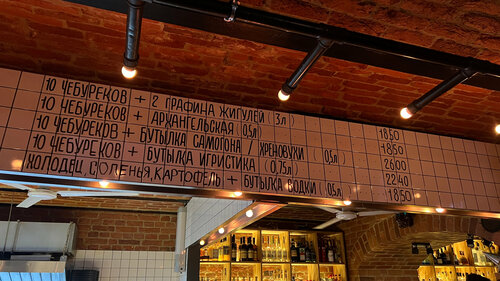 10 ЧЕБУРЕКОВ + 2 ГРАФИНА ЖИГУЛЕЙ (3л) 1850
10 ЧЕБУРЕКОВ + АРХАНГЕЛЬСКАЯ (0,5л) 1850
10 ЧЕБУРЕКОВ + БУТЫЛКА САМОГОНА / ХРЕНОВУХИ (0,5л) 2600
10 ЧЕБУРЕКОВ + БУТЫЛКА ИГРИСТИКА (0,75л) 2240
ХОЛОДЕЦ, СОЛЕНЬЯ, КАРТОФЕЛЬ + БУТЫЛКА ВОДКИ (0,5л 1850